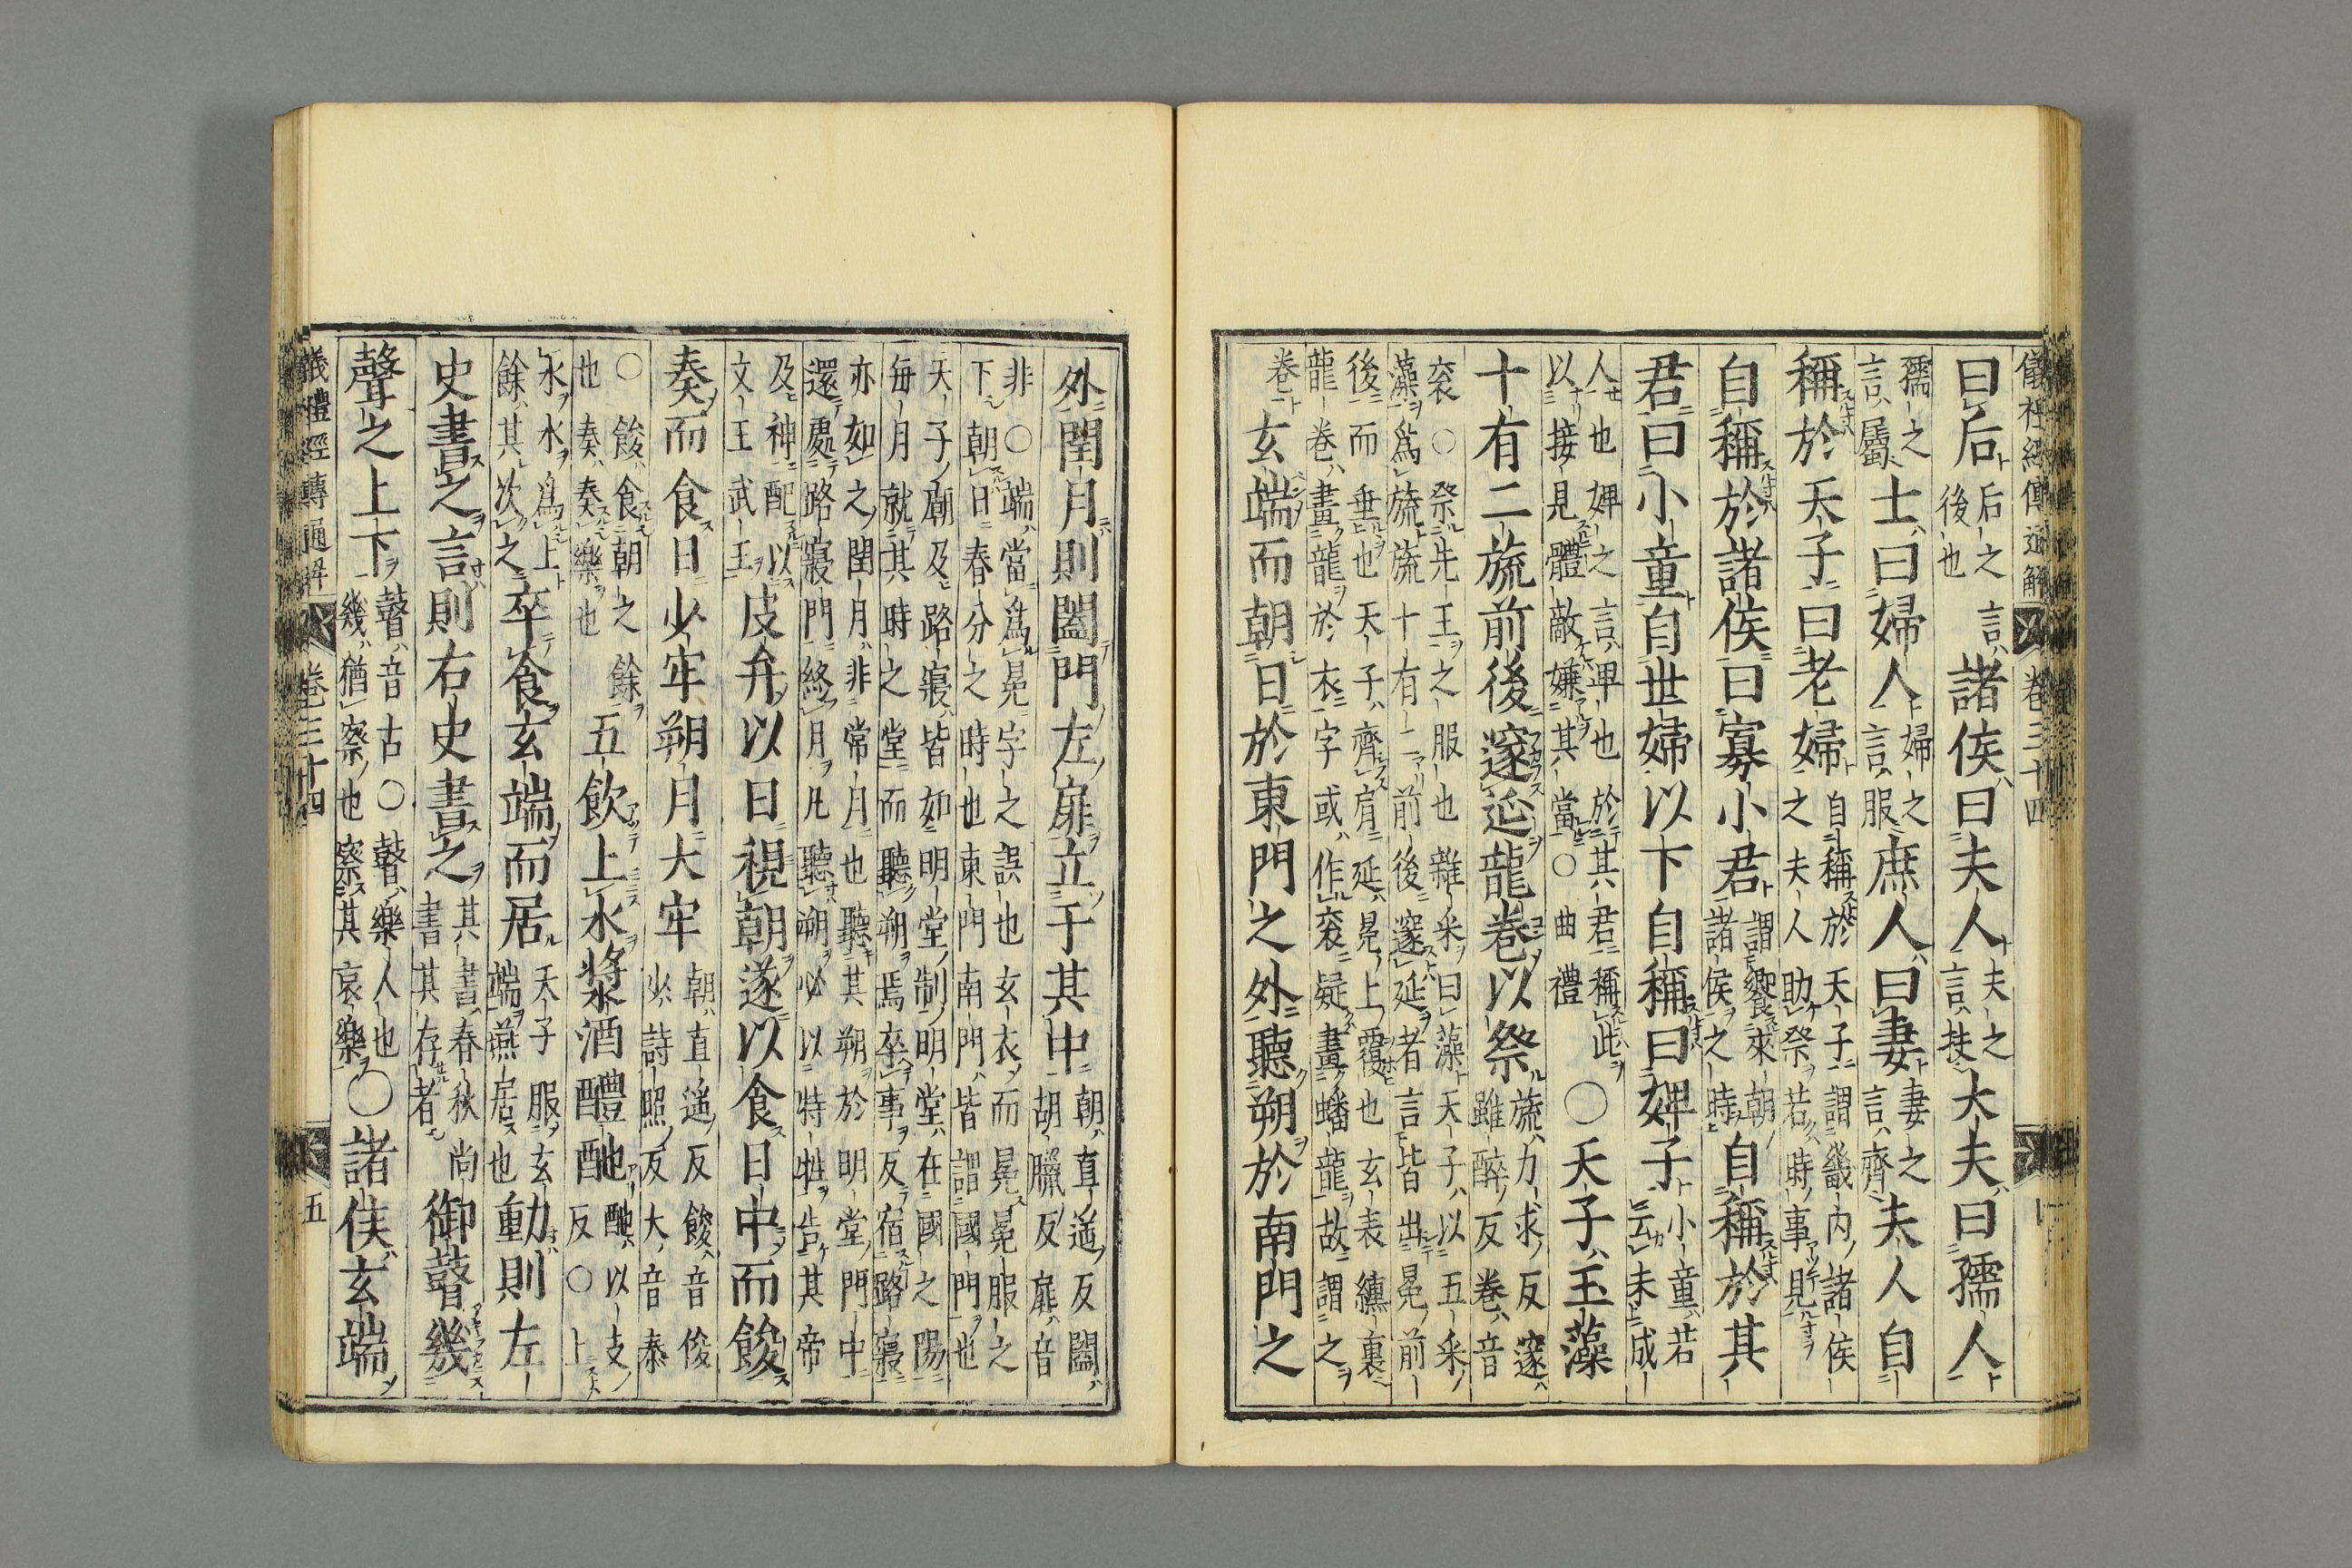 儀禮經傳通解 卷三十四
曰后后之言後也諸侯曰夫人夫之言扶大夫曰孺人
孺之言屬士曰婦人婦之言服庶人曰妻妻之言齊夫人自
稱於天子曰老婦自稱於天子謂畿内諸侯之夫人助祭若時事見
自稱於諸侯曰寡小君謂饗來朝諸侯之時自稱於其
君曰小童自世婦以下自稱曰婢子小童若云未成
人也婢之言卑也於其君稱此以接見體敵嫌其當○曲禮○天子玉藻
十有二旒前後邃延龍卷以祭旒力求反邃雖醉反卷音
袞○祭先王之服也雜采曰藻天子以五采
藻爲旒旒十有二前後邃延者言皆出冕前
後而垂也天子齊肩延冕上覆也玄表纁裏
龍卷畫龍於衣字或作袞疑畫蟠龍故謂之
卷玄端而朝日於東門之外聽朔於南門之
外閏月則闔門左扉立于其中朝直遥反闔胡臘反扉音
非○端當爲冕字之誤也玄衣而冕冕服之
下朝日春分之時也東門南門皆謂國門也
天子廟及路寢皆如明堂制明堂在國之陽
每月就其時之堂而聽朔焉卒事反宿路寢
亦如之閏月非常月也聽其朔於明堂門中
還處路寢門終月凡聽朔必以特牲告其帝
及神配以文王武王皮弁以日視朝遂以食日中而餕
奏而食日少牢朔月大牢朝直遥反餕音俊少詩照反大音泰
○餕食朝之餘也奏奏樂也五飲上水漿酒醴酏酏以支反○上
水水爲上餘其次之卒食玄端而居天子服玄端燕居也動則左
史書之言則右史書之其書春秋尚書其存者御瞽幾
聲之上下瞽音古○瞽樂人也幾猶察也察其哀樂○諸侯玄端
儀禮經傳通解 卷三十四 五